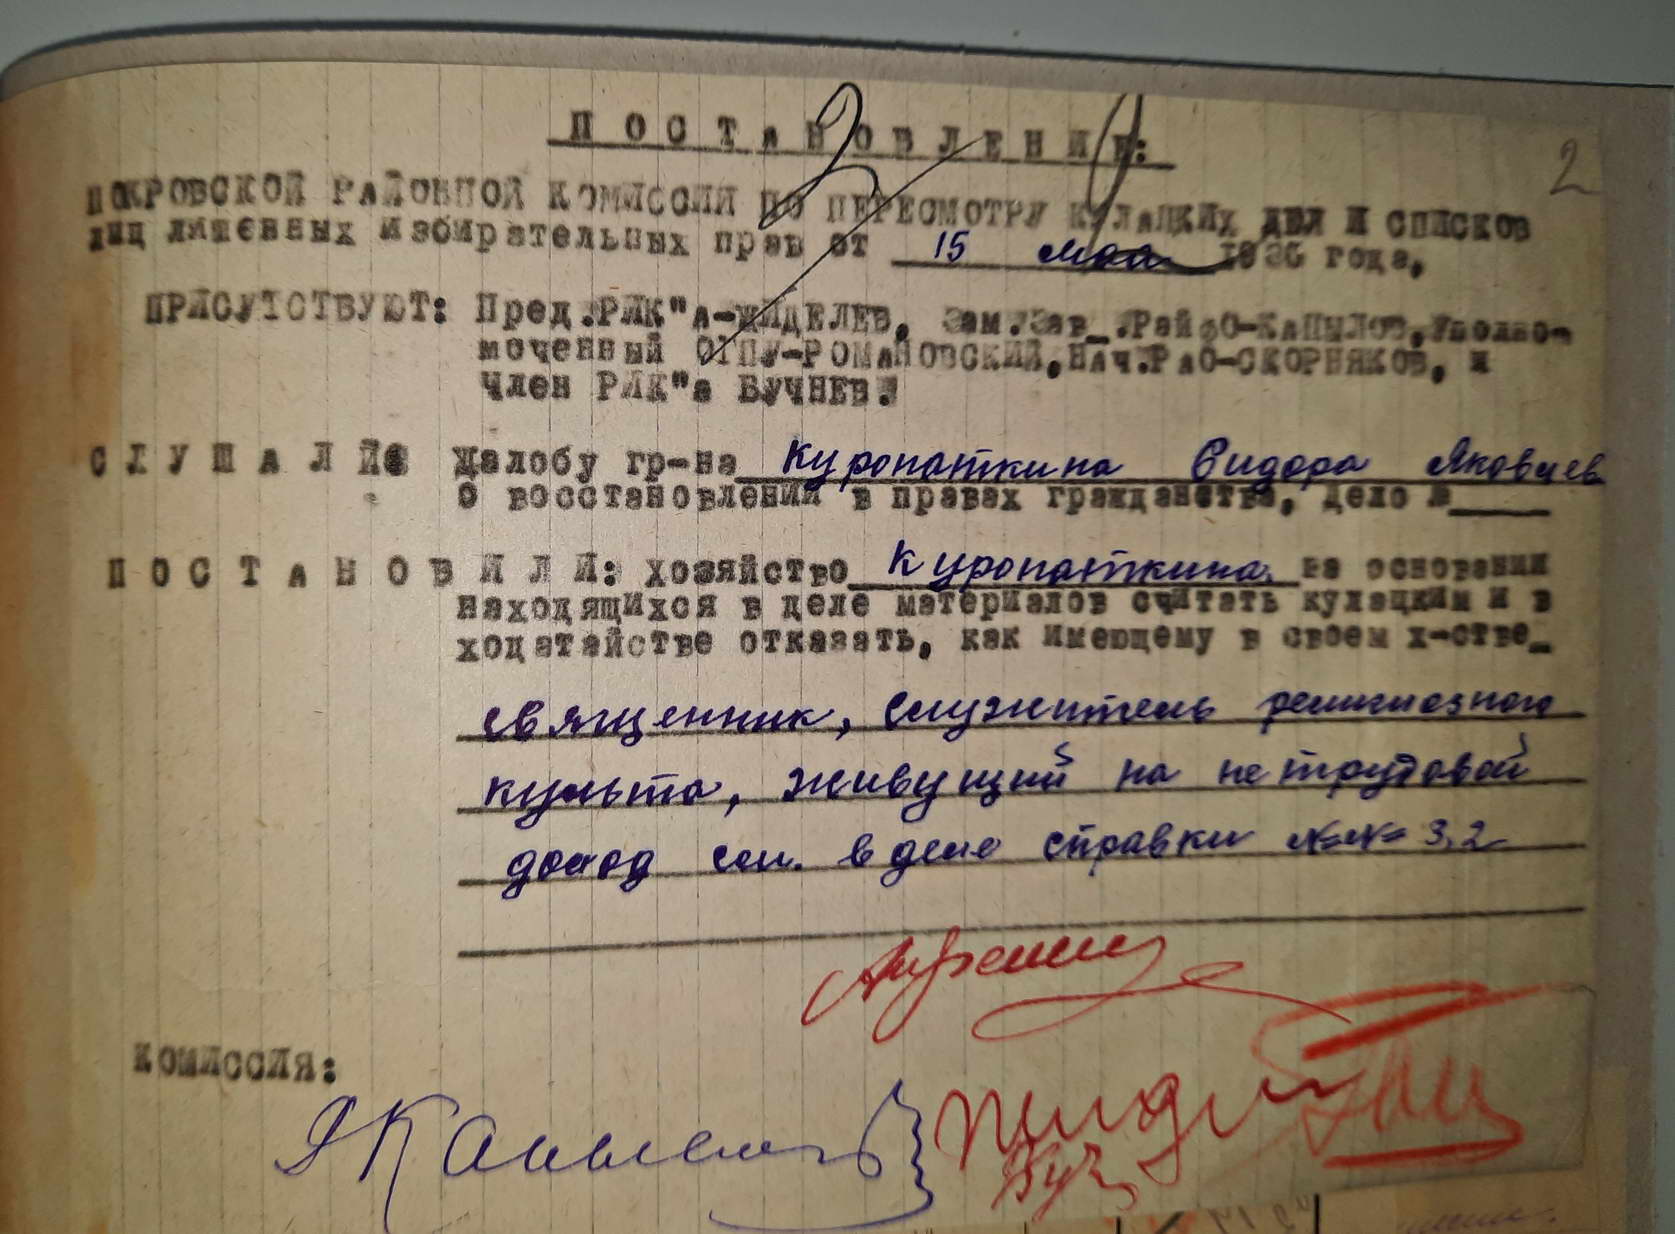 2
ПОСТАНОВЛЕНИЕ:
ПОКРОВСКОЙ РАЙОННОЙ КОМИССИИ ПО ПЕРЕСМОТРУ КУЛАЦКИХ ДЕЛ И СПИСКОВ
лиц лишенных избирательных прав от 15 мая 1930 года,
ПРИСУТСТВУЮТ: Пред.РИК"а-ЖИДЕЛЕВ, Зам.Зав.РайФО-КАПЫЛОВ,Уполно-
моченный ОГПУ-РОМАНОВСКИЙ,НАЧ.РАО-СКОРНЯКОВ, и
член РИК"а БУЧНЕВ.
СЛУШАЛИ: Жалобу гр-на Куропаткина Сидора Яковлев
О восстановлении в правах гражданства, дело №
ПОСТАНОВИЛИ: хозяйство Куропаткина на основании
находящихся в деле материалов считать кулацким и в
ходатайстве отказать, как имеющему в своем х-стве
священник, служитель религиозного
культа, живущий на нетрудовой
доход см. в деле справки №№ 3,2
КОМИССИЯ: